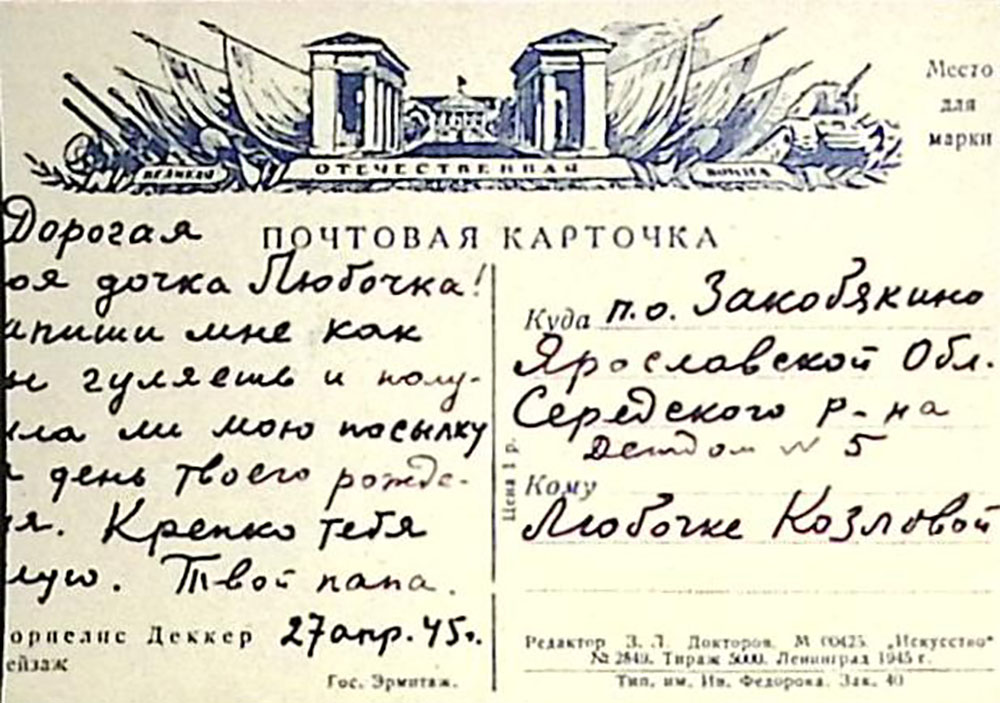 Место
для
марки
ВЕЛИКАЯ ОТЕЧЕСТВЕННАЯ ВОЙНА
ПОЧТОВАЯ КАРТОЧКА
Дорогая
оя дочка Любочка!
апиши мне как
ы гуляешь и полу-
ила ли мою посылку
а день твоего рожде-
ия. Крепко тебя
лую. Твой папа.
27 апр. 45г.
орнелис Деккер
ейзаж
Гос. Эрмитаж.
Цена 1 р.
Куда п.о. Закобякино
Ярославской Обл.
Середского р-на
Детдом N 5
Кому
Любочке Козловой
Редактор З. Л. Докторов. М 00425. „Искусство"
№ 2849. Тираж 5000. Ленинград 1945 г.
Тип. им. Ив. Федорова. Зак. 40